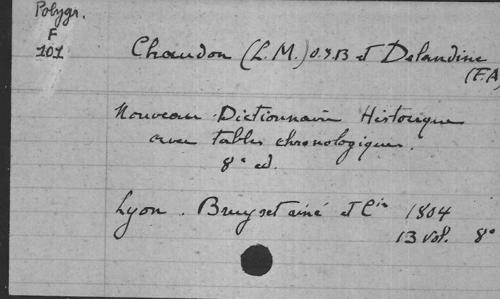 Polygr.
F
101
Chaudon (L. M.) O.S.B et Delandine
(F.A)
Nouveau Dictionnaire Historique
avec tables chronologiques.
8e ed.
Lyon. Bruyset ainé et Cie 1804
13 vol. 8°